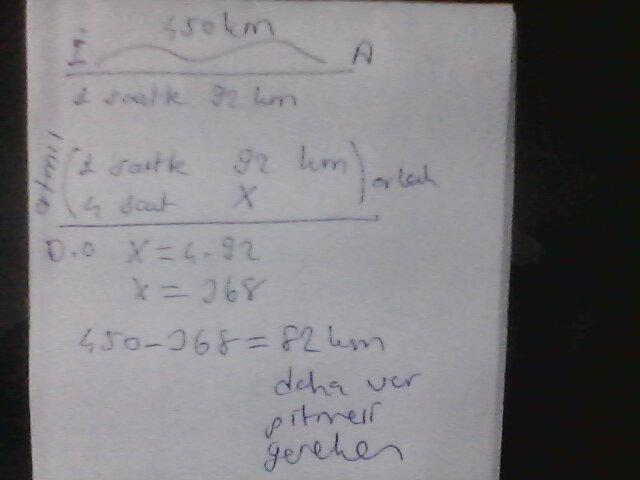 450km
İ. A
1 saatte 92 km
artmış (1 saatte 92 km) azalan
4 saat X
D.O X=4.92
X=368
450-368=82 km
daha var
gitmesi
gereken